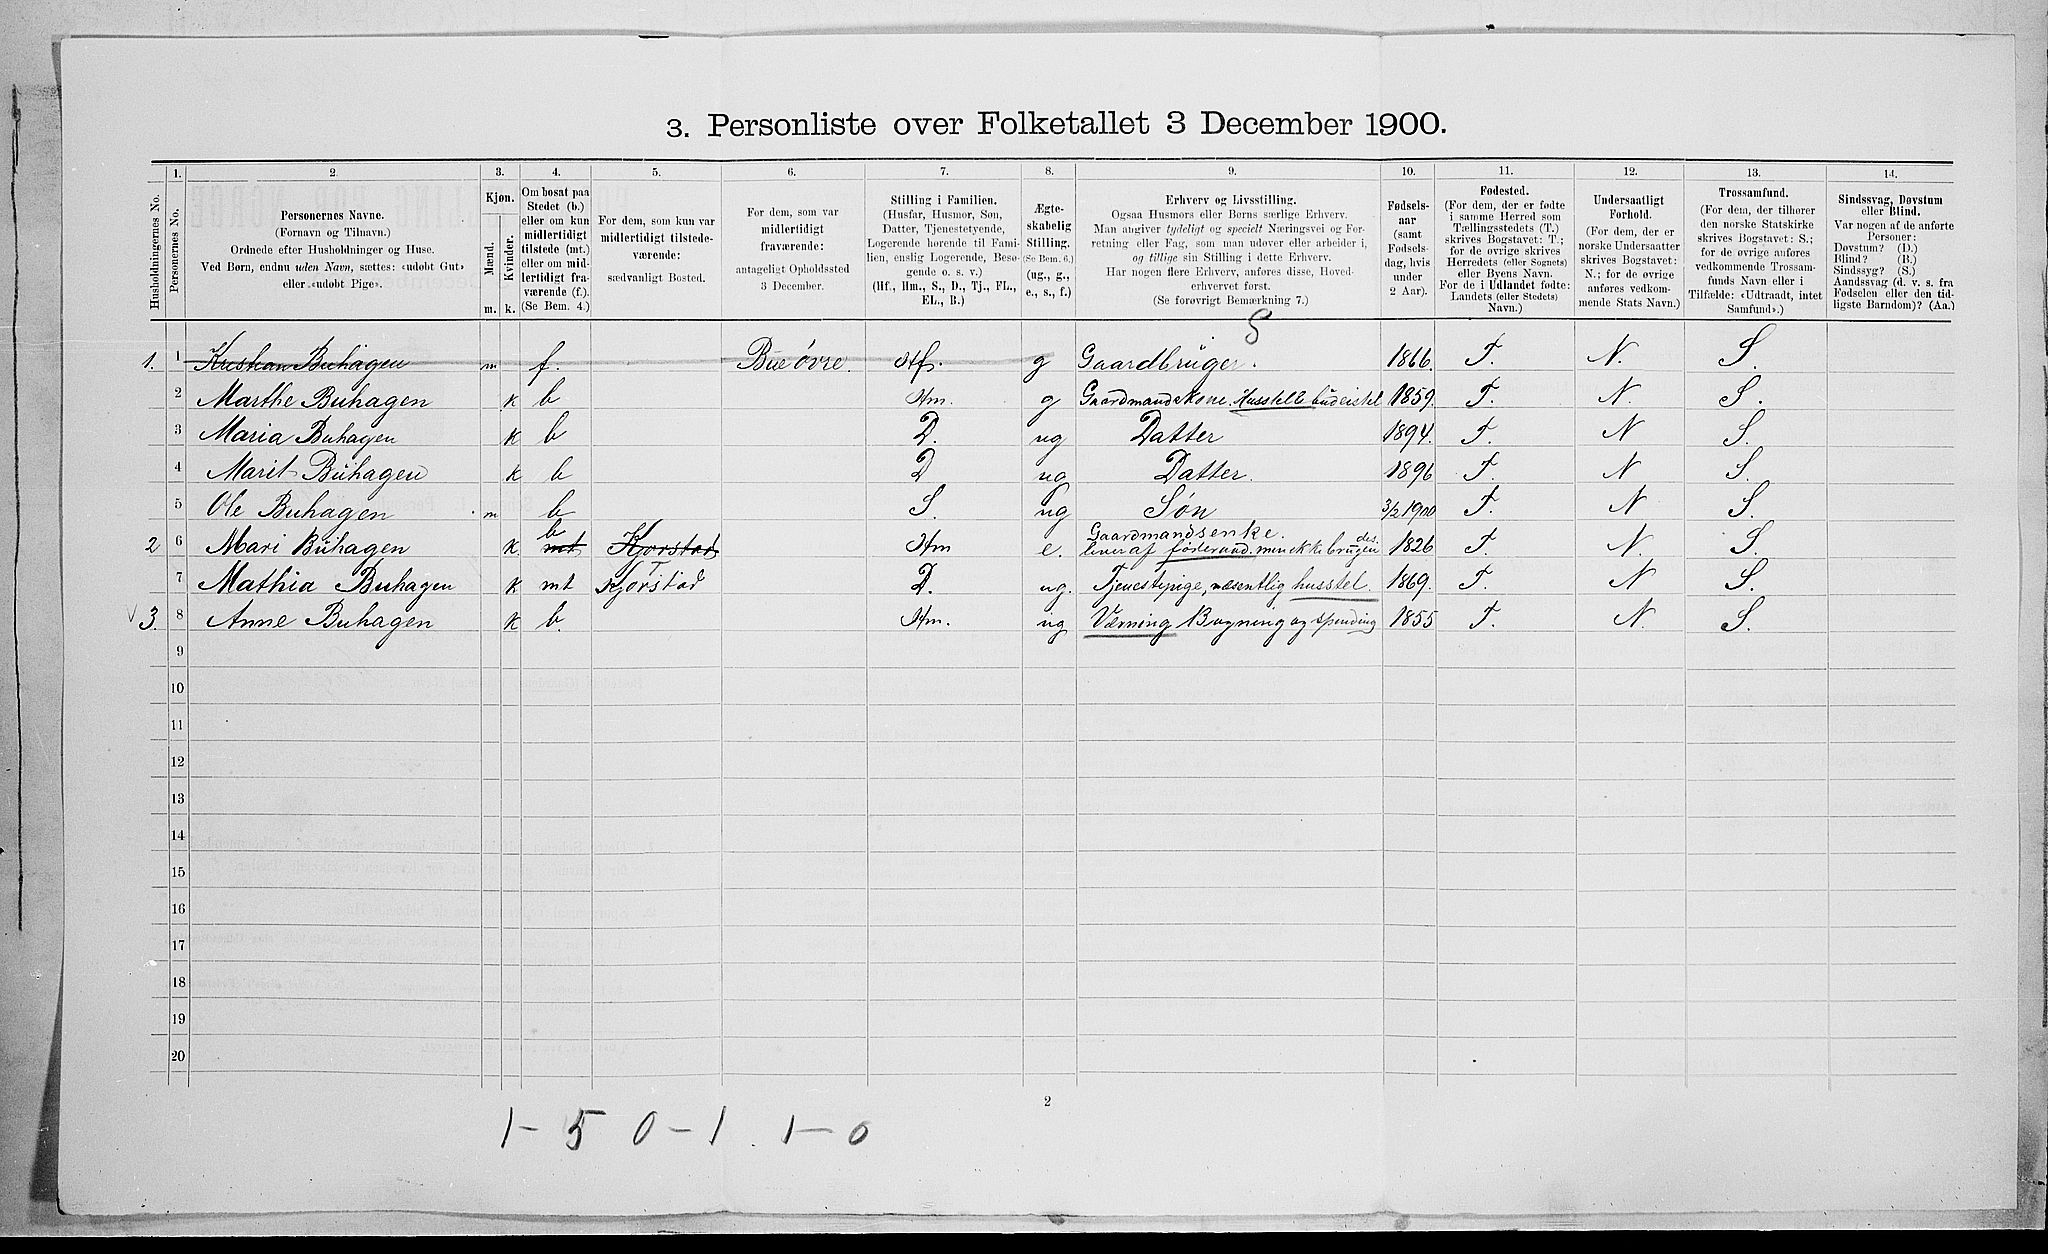 3. Personliste over Folketallet 3 December 1900.
1. 2. 3. 4. 5. 6. 7. 8. 9. 10. 11. 12. 13. 14.
Husholdningernes No.
Personernes No.
Personernes Navne.
(Fornavn og Tilnavn.)
Ordnede efter Husholdninger og Huse.
Ved Børn, endnu uden Navn, sættes: «udøbt Gut»
eller «udøbt Pige».
Kjøn.
Mænd.
Kvinder.
m. k.
Om bosat paa
Stedet (b.)
eller om kun
midlertidigt
tilstede (mt.)
eller om mid-
lertidigt fra-
værende (f.).
(Se Bem. 4.)
For dem, som kun var
midlertidigt tilstede-
værende:
sædvanligt Bosted.
For dem, som var
midlertidigt
fraværende:
antageligt Opholdssted
3 December.
Stilling i Familien.
(Husfar, Husmor, Søn,
Datter, Tjenestetyende,
Logerende hørende til Fami-
lien, enslig Logerende, Besø-
gende o. s. v.)
(Hf., Hm., S., D., Tj., FL.,
EL., B.)
Ægte-
skabelig
Stilling.
(Se Bem. 6.)
(ug., g.,
e., s., f.)
Erhverv og Livsstilling.
Ogsaa Husmors eller Børns særlige Erhverv.
Man angiver tydeligt og specielt Næringsvei og For-
retning eller Fag, som man udøver eller arbeider i,
og tillige sin Stilling i dette Erhverv.
Har nogen flere Erhverv, anføres disse, Hoved-
erhvervet først.
(Se forøvrigt Bemærkning 7.)
Fødsels-
aar
(samt
Fødsels-
dag, hvis
under
2 Aar).
Fødested.
(For dem, der er fødte
i samme Herred som
Tællingsstedets (T.)
skrives Bogstavet: T.;
for de øvrige skrives
Herredets (eller Sognets)
eller Byens Navn.
For de i Udlandet fødte:
Landets (eller Stedets)
Navn.)
Undersaatligt
Forhold.
(For dem, der er
norske Undersaatter
skrives Bogstavet:
N.; for de øvrige
anføres vedkom-
mende Stats Navn.)
Trossamfund.
(For dem, der tilhører
den norske Statskirke
skrives Bogstavet: S.;
for de øvrige anføres
vedkommende Trossam-
funds Navn eller i
Tilfælde: «Udtraadt, intet
Samfund».)
Sindssvag, Døvstum
eller Blind.
Var nogen af de anførte
Personer:
Døvstum? (D.)
Blind? (B.)
Sindssyg? (S.)
Aandssvag (d. v. s. fra
Fødselen eller den tid-
ligste Barndom)? (Aa.)
S
1. 1 Kristian Buhagen m f. Bue øvre. Hf. g Gaardbruger. 1866. T. N. S.
2 Marthe Buhagen k b Hm. g Gaardmandskone. Husstel & budeistel 1859. T. N. S.
3 Maria Buhagen k b D. ug Datter 1894. T. N S.
4 Marit Buhagen k b D ug Datter. 1896 T. N S.
5 Ole Buhagen m b S. ug Søn 3/2 1900 T. N S.
2 6 Mari Buhagen k. mt b Kjorstad Hm e. Gaardmandsenke. lever af føderaad. men ikke brugendes. 1826 T. N. S.
7 Mathia Buhagen k mt Kjorstad T D. ug. Tjenestepige, væsentlig husstel. 1869. T. N S.
3. 8 Anne Buhagen k b. Hm. ug Værning Bagning og spinding 1855 T. N. S.
9
10
11
12
13
14
15
16
17
18
19
20
2
1 - 5 0 - 1. 1 - 0